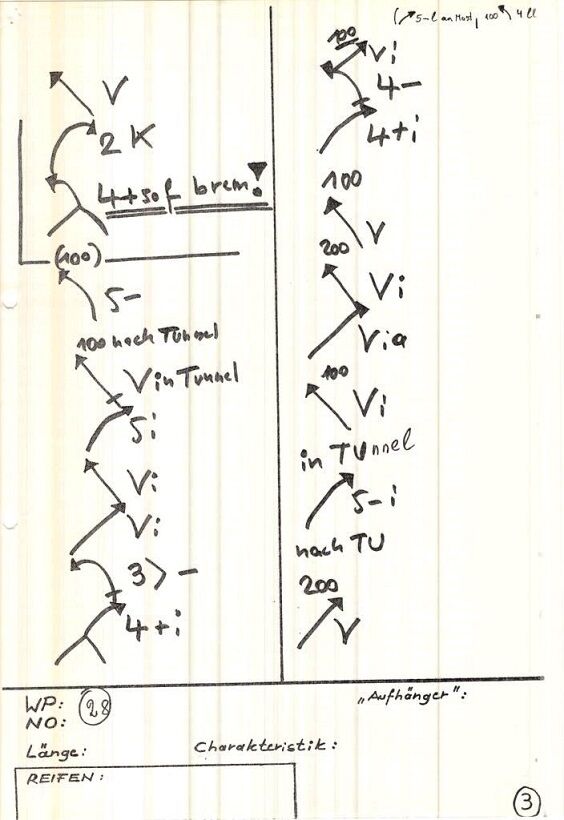 (5-l an Most, 100 4 ll
V
2 K
4+ sof brem!
(100)
5-
100 nach Tunnel
V in Tunnel
5i
Vi
Vi
3>-
4+i
100
Vi
4-
4+i
100
V
200
Vi
Via
100
Vi
in TUnnel
5-i
nach TU
200
V
WP: 28
NO:
„Aufhänger":
Länge:
Charakteristik:
REIFEN:
3